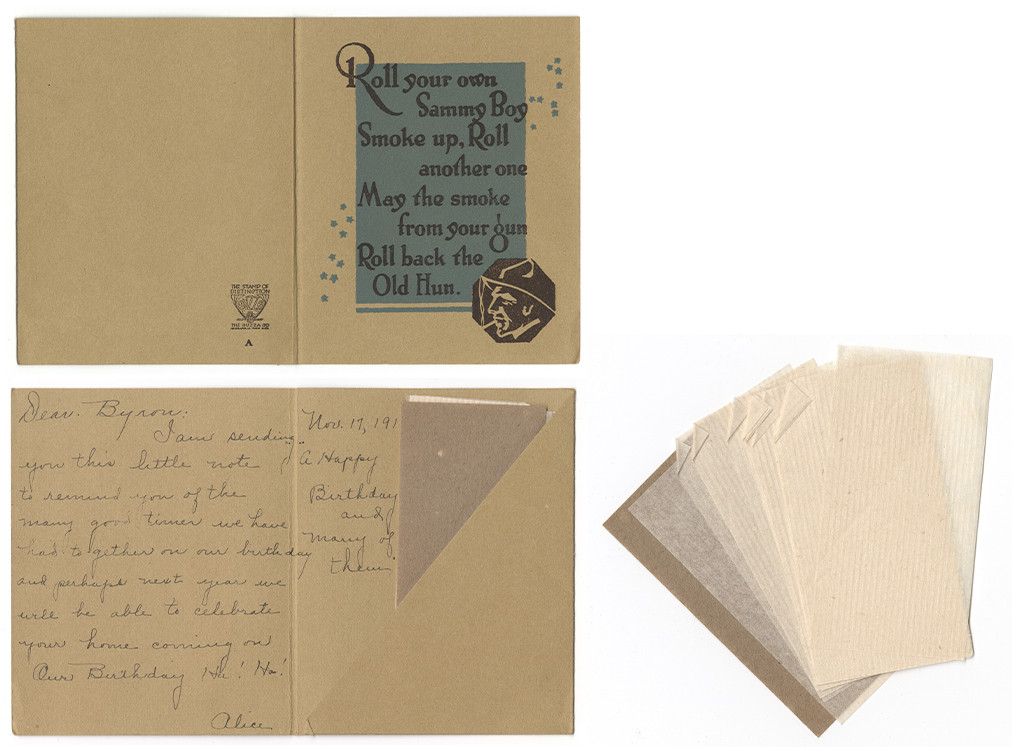 Roll your own
Sammy Boy
Smoke up, Roll
another one
May the smoke
from your gun
Roll back the
Old Hun.
THE STAMP OF
DISTINCTION
THE BUZZA CO
A
Dear Byron:
I am sending
you this little note
to remind you of the
many good times we have
had together on our birthday
and perhaps next year we
will be able to celebrate
your home coming on
Our Birthday He! Ha!
Alice
Nov. 17, 191
"A Happy
Birthday
and
many of
them"